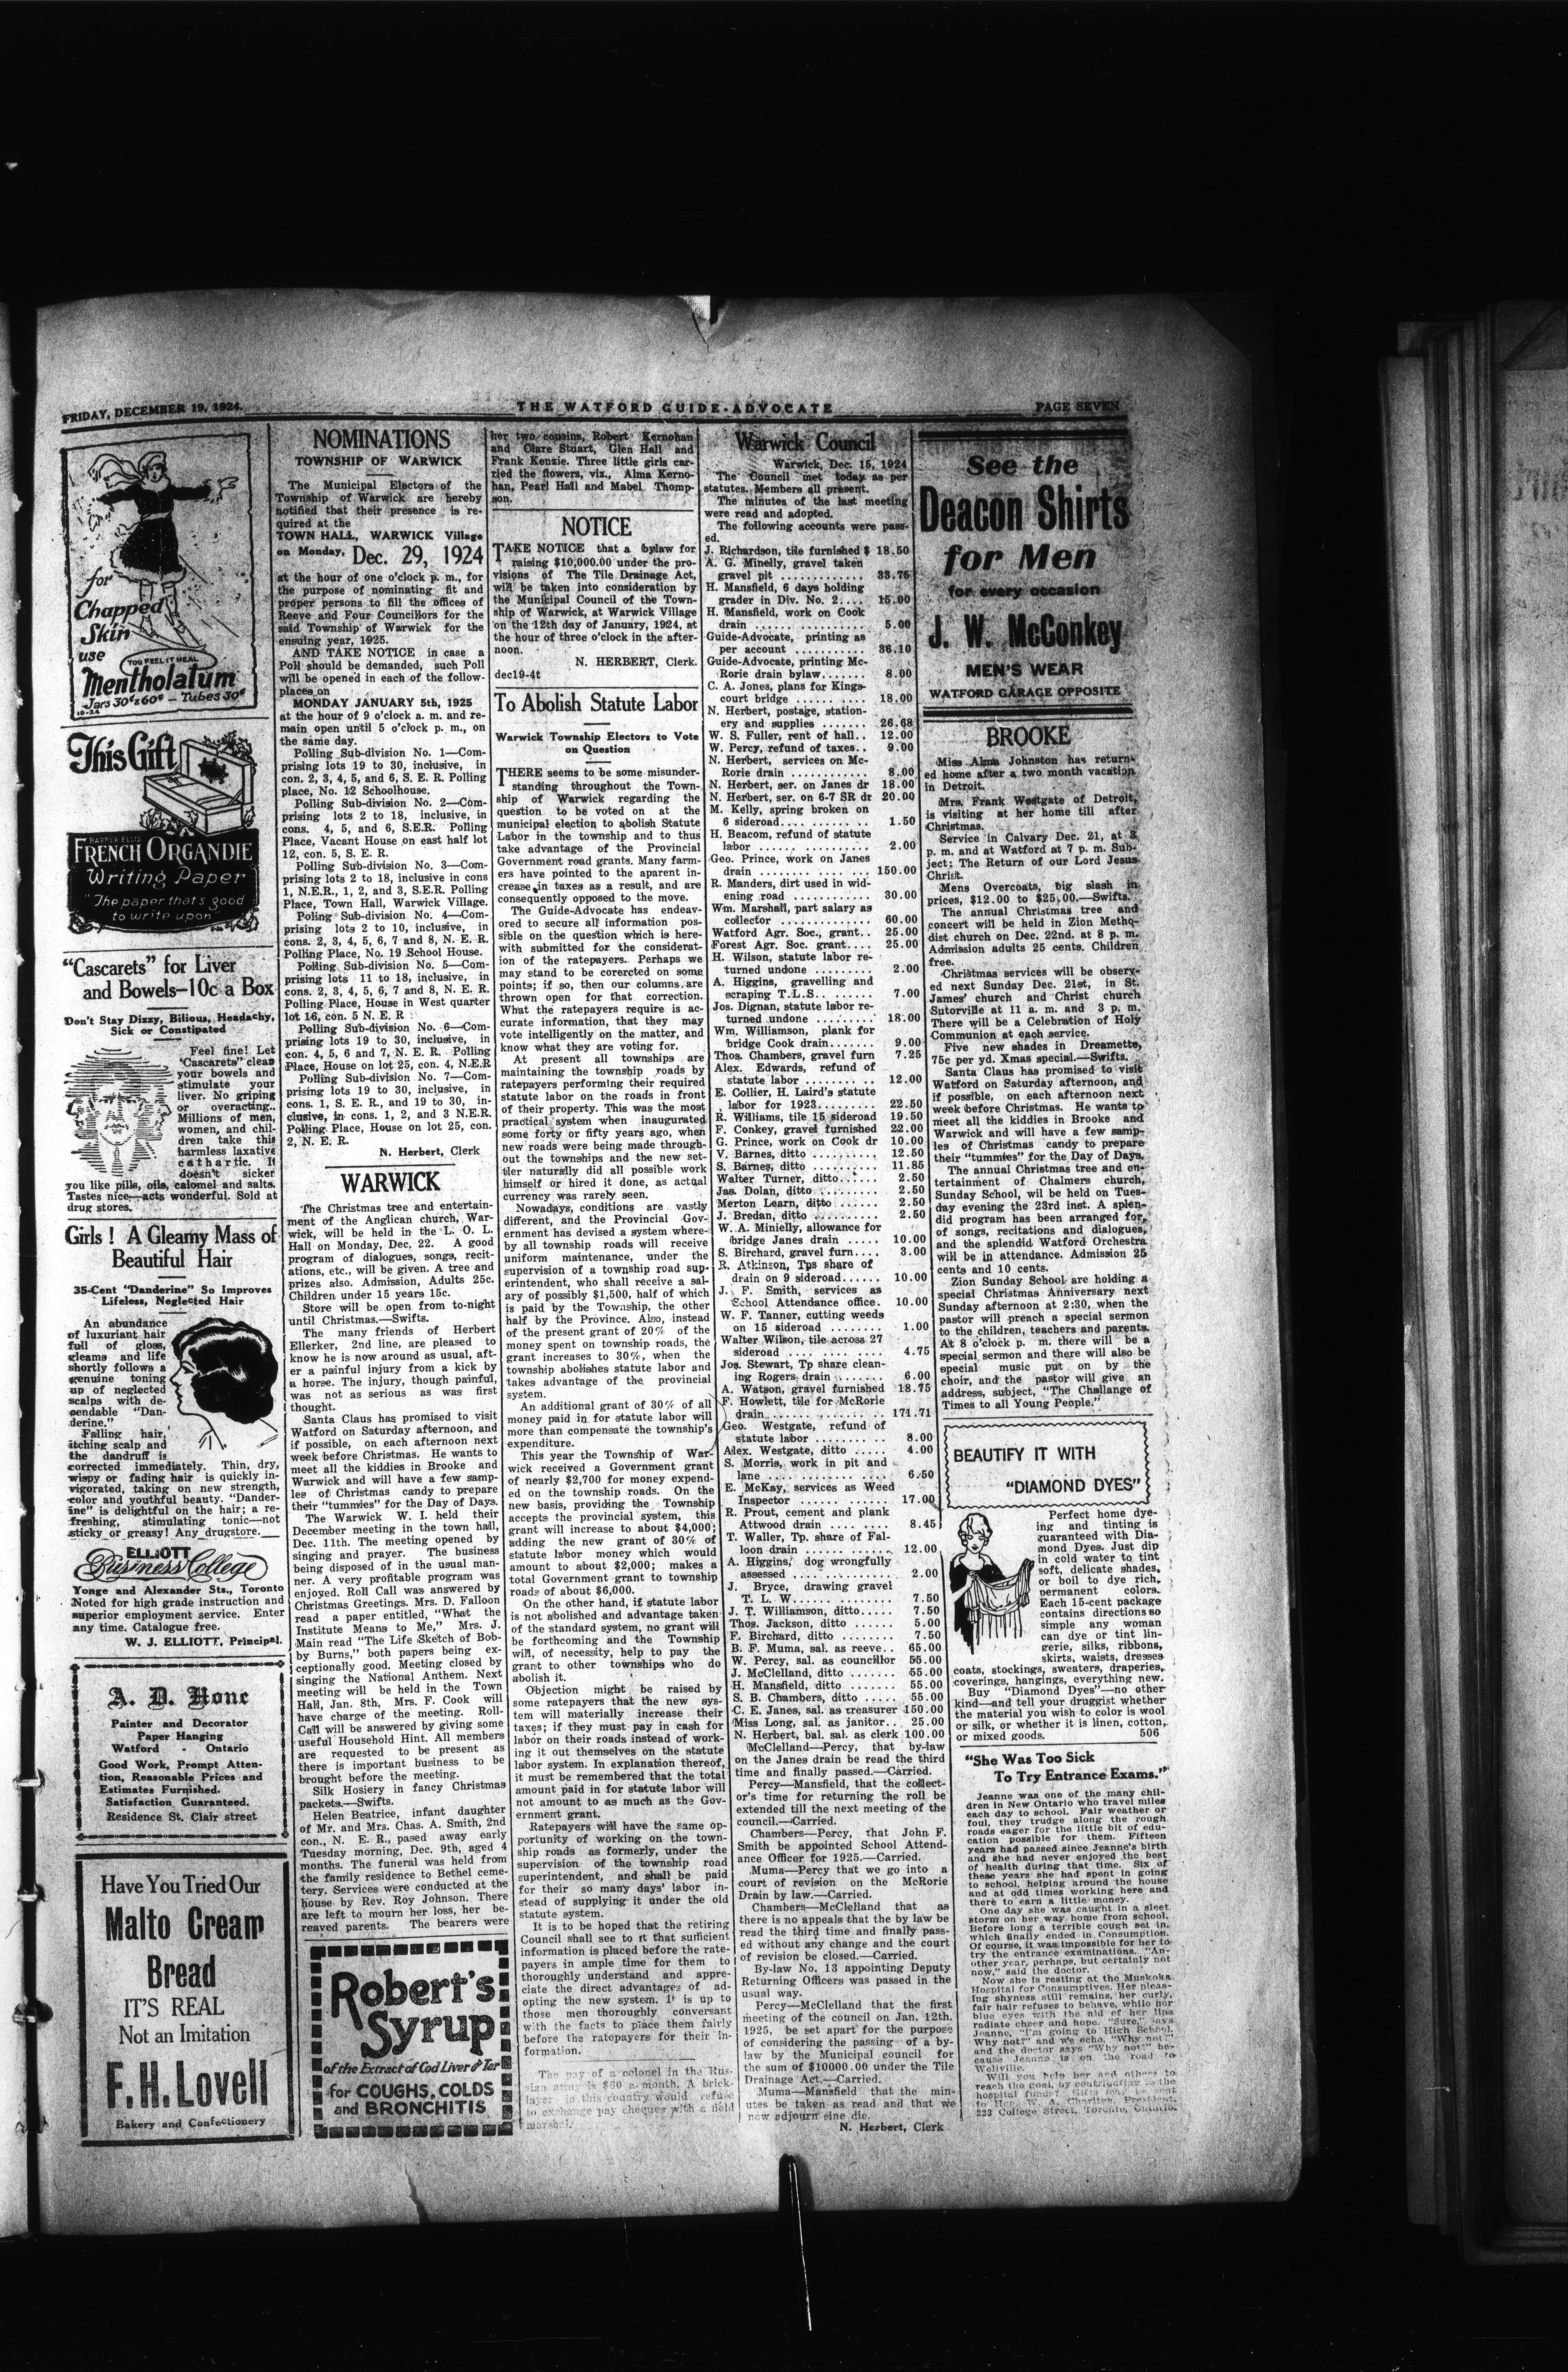 FRIDAY, DECEMBER 19, 1924.
THE WATFORD GUIDE-ADVOCATE
PAGE SEVEN
for
Chapped
Skin
use
YOU FEEL IT HEAL
Mentholatum
Jars 30¢ & 60¢ - Tubes 30¢
This Gift
FRENCH ORGANDIE
Writing Paper
"The paper that's good
to write upon"
"Cascarets" for Liver
and Bowels—10c a Box
Don't Stay Dizzy, Bilious, Headachy,
Sick or Constipated
Feel fine! Let
"Cascarets" clean
your bowels and
stimulate your
liver. No griping
or overacting.
Millions of men,
women, and chil-
dren take this
harmless laxative
cathartic. It
doesn't sicken
you like pills, oils, calomel and salts.
Tastes nice—acts wonderful. Sold at
drug stores.
Girls! A Gleamy Mass of
Beautiful Hair
35-Cent "Danderine" So Improves
Lifeless, Neglected Hair
An abundance
of luxuriant hair
full of gloss,
gleams and life
shortly follows a
genuine toning
up of neglected
scalps with de-
pendable "Dan-
derine."
Falling hair,
itching scalp and
the dandruff is
corrected immediately. Thin, dry,
wispy or fading hair is quickly in-
vigorated, taking on new strength,
color and youthful beauty. "Dander-
ine" is delightful on the hair; a re-
freshing, stimulating tonic—not
sticky or greasy! Any drugstore.
ELLIOTT
Business College
Yonge and Alexander Sts., Toronto
Noted for high grade instruction and
superior employment service. Enter
any time. Catalogue free.
W. J. ELLIOTT, Principal.
A. D. Hone
Painter and Decorator
Paper Hanging
Watford - Ontario
Good Work, Prompt Atten-
tion, Reasonable Prices and
Estimates Furnished.
Satisfaction Guaranteed.
Residence St. Clair street
Have You Tried Our
Malto Cream
Bread
IT'S REAL
Not an Imitation
F. H. Lovell
Bakery and Confectionery
NOMINATIONS
TOWNSHIP OF WARWICK
The Municipal Electors of the
Township of Warwick are hereby
notified that their presence is re-
quired at the
TOWN HALL, WARWICK Village
on Monday, Dec. 29, 1924
at the hour of one o'clock p. m., for
the purpose of nominating fit and
proper persons to fill the offices of
Reeve and Four Councillors for the
said Township of Warwick for the
ensuing year, 1925.
AND TAKE NOTICE in case a
Poll should be demanded, such Poll
will be opened in each of the follow-
places on
MONDAY JANUARY 5th, 1925
at the hour of 9 o'clock a. m. and re-
main open until 5 o'clock p. m., on
the same day.
Polling Sub-division No. 1—Com-
prising lots 19 to 30, inclusive, in
con. 2, 3, 4, 5, and 6, S. E. R. Polling
place, No. 12 Schoolhouse.
Polling Sub-division No. 2—Com-
prising lots 2 to 18, inclusive, in
cons. 4, 5, and 6, S.E.R. Polling
Place, Vacant House on east half lot
12, con. 5, S. E. R.
Polling Sub-division No. 3—Com-
prising lots 2 to 18, inclusive in cons
1, N.E.R., 1, 2, and 3, S.E.R. Polling
Place, Town Hall, Warwick Village.
Poling Sub-division No. 4—Com-
prising lots 2 to 10, inclusive, in
cons. 2, 3, 4, 5, 6, 7 and 8, N. E. R.
Polling Place, No. 19 School House.
Polling Sub-division No. 5—Com-
prising lots 11 to 18, inclusive, in
cons. 2, 3, 4, 5, 6, 7 and 8, N. E. R.
Polling Place, House in West quarter
lot 16, con. 5 N. E. R
Polling Sub-division No. 6—Com-
prising lots 19 to 30, inclusive, in
con. 4, 5, 6 and 7, N. E. R. Polling
Place, House on lot 25, con. 4, N.E.R
Polling Sub-division No. 7—Com-
prising lots 19 to 30, inclusive, in
cons. 1, S. E. R., and 19 to 30, in-
clusive, in cons. 1, 2, and 3 N.E.R.
Polling Place, House on lot 25, con.
2, N. E. R.
N. Herbert, Clerk
WARWICK
The Christmas tree and entertain-
ment of the Anglican church, War-
wick, will be held in the L. O. L.
Hall on Monday, Dec. 22. A good
program of dialogues, songs, recit-
ations, etc., will be given. A tree and
prizes also. Admission, Adults 25c.
Children under 15 years 15c.
Store will be open from to-night
until Christmas.—Swifts.
The many friends of Herbert
Ellerker, 2nd line, are pleased to
know he is now around as usual, aft-
er a painful injury from a kick by
a horse. The injury, though painful,
was not as serious as was first
thought.
Santa Claus has promised to visit
Watford on Saturday afternoon, and
if possible, on each afternoon next
week before Christmas. He wants to
meet all the kiddies in Brooke and
Warwick and will have a few samp-
les of Christmas candy to prepare
their "tummies" for the Day of Days.
The Warwick W. I. held their
December meeting in the town hall,
Dec. 11th. The meeting opened by
singing and prayer. The business
being disposed of in the usual man-
ner. A very profitable program was
enjoyed. Roll Call was answered by
Christmas Greetings. Mrs. D. Falloon
read a paper entitled, "What the
Institute Means to Me," Mrs. J.
Main read "The Life Sketch of Bob-
by Burns," both papers being ex-
ceptionally good. Meeting closed by
singing the National Anthem. Next
meeting will be held in the Town
Hall, Jan. 8th, Mrs. F. Cook will
have charge of the meeting. Roll-
Call will be answered by giving some
useful Household Hint. All members
are requested to be present as
there is important business to be
brought before the meeting.
Silk Hosiery in fancy Christmas
packets.—Swifts.
Helen Beatrice, infant daughter
of Mr. and Mrs. Chas. A. Smith, 2nd
con., N. E. R., pased away early
Tuesday morning, Dec. 9th, aged 4
months. The funeral was held from
the family residence to Bethel ceme-
tery. Services were conducted at the
house by Rev. Roy Johnson. There
are left to mourn her loss, her be-
reaved parents. The bearers were
Robert's
Syrup
of the Extract of Cod Liver & Tar
for COUGHS, COLDS
and BRONCHITIS
her two cousins, Robert Kernohan
and Clare Stuart, Glen Hall and
Frank Kenzie. Three little girls car-
ried the flowers, viz., Alma Kerno-
han, Pearl Hall and Mabel Thomp-
son.
NOTICE
TAKE NOTICE that a bylaw for
raising $10,000.00 under the pro-
visions of The Tile Drainage Act,
will be taken into consideration by
the Municipal Council of the Town-
ship of Warwick, at Warwick Village
on the 12th day of January, 1924, at
the hour of three o'clock in the after-
noon.
N. HERBERT, Clerk.
dec19-4t
To Abolish Statute Labor
Warwick Township Electors to Vote
on Question
THERE seems to be some misunder-
standing throughout the Town-
ship of Warwick regarding the
question to be voted on at the
municipal election to abolish Statute
Labor in the township and to thus
take advantage of the Provincial
Government road grants. Many farm-
ers have pointed to the aparent in-
crease in taxes as a result, and are
consequently opposed to the move.
The Guide-Advocate has endeav-
ored to secure all information pos-
sible on the question which is here-
with submitted for the considerat-
ion of the ratepayers. Perhaps we
may stand to be corercted on some
points; if so, then our columns are
thrown open for that correction.
What the ratepayers require is ac-
curate information, that they may
vote intelligently on the matter, and
know what they are voting for.
At present all townships are
maintaining the township roads by
ratepayers performing their required
statute labor on the roads in front
of their property. This was the most
practical system when inaugurated
some forty or fifty years ago, when
new roads were being made through-
out the townships and the new set-
tler naturally did all possible work
himself or hired it done, as actual
currency was rarely seen.
Nowadays, conditions are vastly
different, and the Provincial Gov-
ernment has devised a system where-
by all township roads will receive
uniform maintenance, under the
supervision of a township road sup-
erintendent, who shall receive a sal-
ary of possibly $1,500, half of which
is paid by the Township, the other
half by the Province. Also, instead
of the present grant of 20% of the
money spent on township roads, the
grant increases to 30%, when the
township abolishes statute labor and
takes advantage of the provincial
system.
An additional grant of 30% of all
money paid in for statute labor will
more than compensate the township's
expenditure.
This year the Township of War-
wick received a Government grant
of nearly $2,700 for money expend-
ed on the township roads. On the
new basis, providing the Township
accepts the provincial system, this
grant will increase to about $4,000;
adding the new grant of 30% of
statute labor money which would
amount to about $2,000; makes a
total Government grant to township
roads of about $6,000.
On the other hand, if statute labor
is not abolished and advantage taken
of the standard system, no grant will
be forthcoming and the Township
will, of necessity, help to pay the
grant to other townships who do
abolish it.
Objection might be raised by
some ratepayers that the new sys-
tem will materially increase their
taxes; if they must pay in cash for
labor on their roads instead of work-
ing it out themselves on the statute
labor system. In explanation thereof,
it must be remembered that the total
amount paid in for statute labor will
not amount to as much as the Gov-
ernment grant.
Ratepayers will have the same op-
portunity of working on the town-
ship roads as formerly, under the
supervision of the township road
superintendent, and shall be paid
for their so many days' labor in-
stead of supplying it under the old
statute system.
It is to be hoped that the retiring
Council shall see to it that sufficient
information is placed before the rate-
payers in ample time for them to
thoroughly understand and appre-
ciate the direct advantages of ad-
opting the new system. It is up to
those men thoroughly conversant
with the facts to place them fairly
before the ratepayers for their in-
formation.
The pay of a colonel in the Rus-
sian army is $60 a month. A brick-
layer in this country would refuse
to exchange pay cheques with a field
marshal.
Warwick Council
Warwick, Dec. 15, 1924
The Council met today as per
statutes. Members all present.
The minutes of the last meeting
were read and adopted.
The following accounts were pass-
ed.
J. Richardson, tile furnished $ 18.50
A. G. Minelly, gravel taken
gravel pit ............ 33.75
H. Mansfield, 6 days holding
grader in Div. No. 2.... 15.00
H. Mansfield, work on Cook
drain ............... 5.00
Guide-Advocate, printing as
per account .......... 36.10
Guide-Advocate, printing Mc-
Rorie drain bylaw....... 8.00
C. A. Jones, plans for Kings-
court bridge .......... 18.00
N. Herbert, postage, station-
ery and supplies ....... 26.68
W. S. Fuller, rent of hall.. 12.00
W. Percy, refund of taxes.. 9.00
N. Herbert, services on Mc-
Rorie drain ........... 8.00
N. Herbert, ser. on Janes dr 18.00
N. Herbert, ser. on 6-7 SR dr 20.00
M. Kelly, spring broken on
6 sideroad............. 1.50
H. Beacom, refund of statute
labor ............... 2.00
Geo. Prince, work on Janes
drain ............... 150.00
R. Manders, dirt used in wid-
ening road ........... 30.00
Wm. Marshall, part salary as
collector ............. 60.00
Watford Agr. Soc., grant.. 25.00
Forest Agr. Soc. grant.... 25.00
H. Wilson, statute labor re-
turned undone ......... 2.00
A. Higgins, gravelling and
scraping T.L.S......... 7.00
Jos. Dignan, statute labor re-
turned undone ......... 18.00
Wm. Williamson, plank for
bridge Cook drain....... 9.00
Thos. Chambers, gravel furn 7.25
Alex. Edwards, refund of
statute labor .......... 12.00
E. Collier, H. Laird's statute
labor for 1923......... 22.50
R. Williams, tile 15 sideroad 19.50
F. Conkey, gravel furnished 22.00
G. Prince, work on Cook dr 10.00
V. Barnes, ditto .......... 12.50
S. Barnes, ditto .......... 11.85
Walter Turner, ditto...... 2.50
Jas. Dolan, ditto ......... 2.50
Merton Learn, ditto ...... 2.50
J. Bredan, ditto .......... 2.50
W. A. Minielly, allowance for
bridge Janes drain ..... 10.00
S. Birchard, gravel furn.... 3.00
R. Atkinson, Tps share of
drain on 9 sideroad...... 10.00
J. F. Smith, services as
School Attendance office. 10.00
W. F. Tanner, cutting weeds
on 15 sideroad ........ 1.00
Walter Wilson, tile across 27
sideroad ............. 4.75
Jos. Stewart, Tp share clean-
ing Rogers drain ....... 6.00
A. Watson, gravel furnished 18.75
F. Howlett, tile for McRorie
drain................ 171.71
Geo. Westgate, refund of
statute labor .......... 8.00
Alex. Westgate, ditto ..... 4.00
S. Morris, work in pit and
lane ................ 6.50
E. McKay, services as Weed
Inspector ............ 17.00
R. Prout, cement and plank
Attwood drain ........ 8.45
T. Waller, Tp. share of Fal-
loon drain ............ 12.00
A. Higgins, dog wrongfully
assessed ............. 2.00
J. Bryce, drawing gravel
T. L. W.............. 7.50
J. T. Williamson, ditto..... 7.50
Thos. Jackson, ditto ...... 5.00
F. Birchard, ditto ........ 7.50
B. F. Muma, sal. as reeve.. 65.00
W. Percy, sal. as councillor 55.00
J. McClelland, ditto ....... 55.00
H. Mansfield, ditto ....... 55.00
S. B. Chambers, ditto ..... 55.00
C. E. Janes, sal. as treasurer 150.00
Miss Long, sal. as janitor.. 25.00
N. Herbert, bal. sal. as clerk 100.00
McClelland—Percy, that by-law
on the Janes drain be read the third
time and finally passed.—Carried.
Percy—Mansfield, that the collect-
or's time for returning the roll be
extended till the next meeting of the
council.—Carried.
Chambers—Percy, that John F.
Smith be appointed School Attend-
ance Officer for 1925.—Carried.
Muma—Percy that we go into a
court of revision on the McRorie
Drain by law.—Carried.
Chambers—McClelland that as
there is no appeals that the by law be
read the third time and finally pass-
ed without any change and the court
of revision be closed.—Carried.
By-law No. 13 appointing Deputy
Returning Officers was passed in the
usual way.
Percy—McClelland that the first
meeting of the council on Jan. 12th.
1925, be set apart for the purpose
of considering the passing of a by-
law by the Municipal council for
the sum of $10000.00 under the Tile
Drainage Act.—Carried.
Muma—Mansfield that the min-
utes be taken as read and that we
now adjourn sine die.
N. Herbert, Clerk
See the
Deacon Shirts
for Men
for every occasion
J. W. McConkey
MEN'S WEAR
WATFORD GARAGE OPPOSITE
BROOKE
Miss Alma Johnston has return-
ed home after a two month vacation
in Detroit.
Mrs. Frank Westgate of Detroit,
is visiting at her home till after
Christmas.
Service in Calvary Dec. 21, at 3
p. m. and at Watford at 7 p. m. Sub-
ject: The Return of our Lord Jesus
Christ.
Mens Overcoats, big slash in
prices, $12.00 to $25.00.—Swifts.
The annual Christmas tree and
concert will be held in Zion Metho-
dist church on Dec. 22nd. at 8 p. m.
Admission adults 25 cents. Children
free.
Christmas services will be observ-
ed next Sunday Dec. 21st, in St.
James' church and Christ church
Sutorville at 11 a. m. and 3 p. m.
There will be a Celebration of Holy
Communion at each service.
Five new shades in Dreamette,
75c per yd. Xmas special.—Swifts.
Santa Claus has promised to visit
Watford on Saturday afternoon, and
if possible, on each afternoon next
week before Christmas. He wants to
meet all the kiddies in Brooke and
Warwick and will have a few samp-
les of Christmas candy to prepare
their "tummies" for the Day of Days.
The annual Christmas tree and en-
tertainment of Chalmers church,
Sunday School, wil be held on Tues-
day evening the 23rd inst. A splen-
did program has been arranged for,
of songs, recitations and dialogues,
and the splendid Watford Orchestra
will be in attendance. Admission 25
cents and 10 cents.
Zion Sunday School are holding a
special Christmas Anniversary next
Sunday afternoon at 2:30, when the
pastor will preach a special sermon
to the children, teachers and parents.
At 8 o'clock p. m. there will be a
special sermon and there will also be
special music put on by the
choir, and the pastor will give an
address, subject, "The Challange of
Times to all Young People."
BEAUTIFY IT WITH
"DIAMOND DYES"
Perfect home dye-
ing and tinting is
guaranteed with Dia-
mond Dyes. Just dip
in cold water to tint
soft, delicate shades,
or boil to dye rich,
permanent colors.
Each 15-cent package
contains directions so
simple any woman
can dye or tint lin-
gerie, silks, ribbons,
skirts, waists, dresses
coats, stockings, sweaters, draperies,
coverings, hangings, everything new.
Buy "Diamond Dyes"—no other
kind—and tell your druggist whether
the material you wish to color is wool
or silk, or whether it is linen, cotton,
or mixed goods. 506
"She Was Too Sick
To Try Entrance Exams."
Jeanne was one of the many chil-
dren in New Ontario who travel miles
each day to school. Fair weather or
foul, they trudge along the rough
roads eager for the little bit of edu-
cation possible for them. Fifteen
years had passed since Jeanne's birth
and she had never enjoyed the best
of health during that time. Six of
these years she had spent in going
to school, helping around the house
and at odd times working here and
there to earn a little money.
One day she was caught in a sleet
storm on her way home from school.
Before long a terrible cough set in,
which finally ended in Consumption.
Of course, it was impossible for her to
try the entrance examinations. "An-
other year, perhaps, but certainly not
now," said the doctor.
Now she is resting at the Muskoka
Hospital for Consumptives. Her pleas-
ing shyness still remains, her curly,
fair hair refuses to behave, while her
blue eyes with the aid of her lips
radiate cheer and hope. "Sure," says
Jeanne, "I'm going to High School.
Why not?" and we echo, "Why not?"
and the doctor says "Why not!" be-
cause Jeanne is on the road to
Wellville.
Will you help her and others to
reach the goal, by contributing to the
hospital funds? Gifts may be sent
to Hon. W. A. Charlton, President,
223 College Street, Toronto, Ontario.